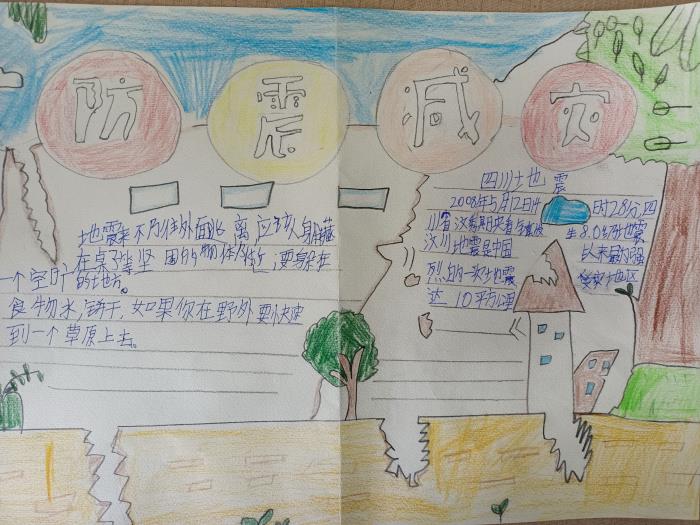 防震减灾
地震来不了往外面逃离应该躲藏
在桌子等坚固的物体附近,要躲在
一个空旷的土地方。
食物水,饼干,如果你在野外要快速
到一个草原上去。
四川土也震
2008年5月12日14时28分,四
川省汶 8.0级地震
汶川地震是中国 以来最为强
烈的一次地震 受灾地区
达10平方公里